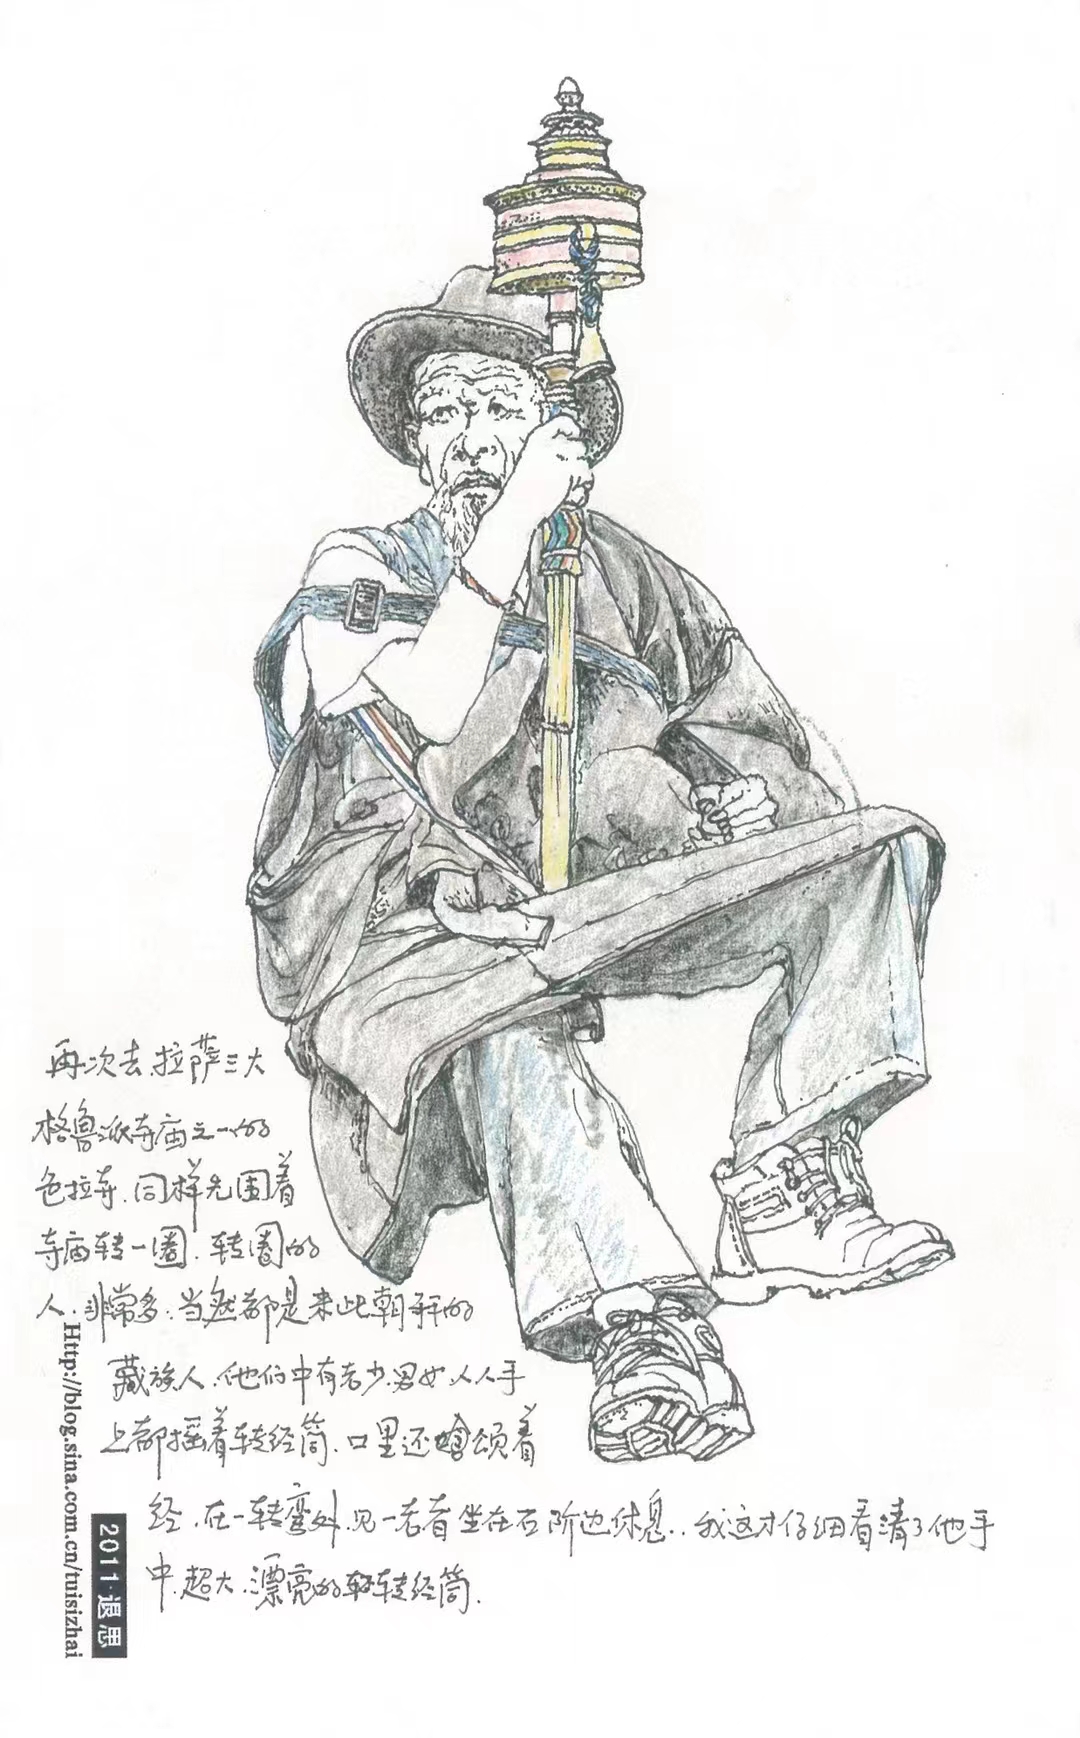 再次去拉萨三大
格鲁派寺庙之一的
色拉寺.同样先围着
寺庙转一圈.转圈的
人.非常多.当然都是来此朝拜的
藏族人.他们中有老少男女人人手
上都摇着转经筒.口里还颂着
经.在一转弯处.见一老者坐在石阶边休息..我这才仔细看清了他手
中.超大.漂亮的转经筒.
Http://blog.sina.com.cn/tuisizhai
2011·退思